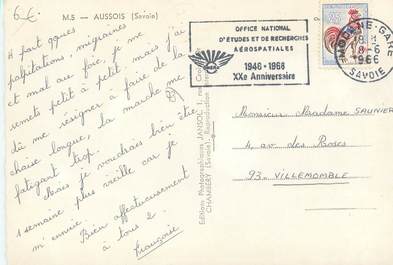 6€
M.S - AUSSOIS (Savoie)
A part qques
palpitations, migraines
et mal au foie, je me
remets petit à petit, mais j'ai
dû me résigner à faire de la
chaise longue, la marche me
fatigant trop.
Mais je voudrais bien être
1 semaine plus vieille car je
m'ennuie. Bien affectueusement
à tous 2
Françoise
Editions Photographiques JANSOL
CHAMBÉRY (Savoie) Reproduction
OFFICE NATIONAL
D'ÉTUDES ET DE RECHERCHES
AÉROSPATIALES
1946-1966
XXe Anniversaire
MODANE-GARE
18 H
8-6
1966
SAVOIE
Monsieur Madame SAUNIER
4 av. des Roses
93_VILLEMOMBLE